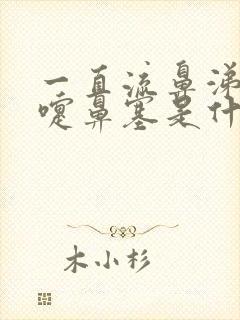 一直流鼻涕
嚏鼻塞是什
木小杉